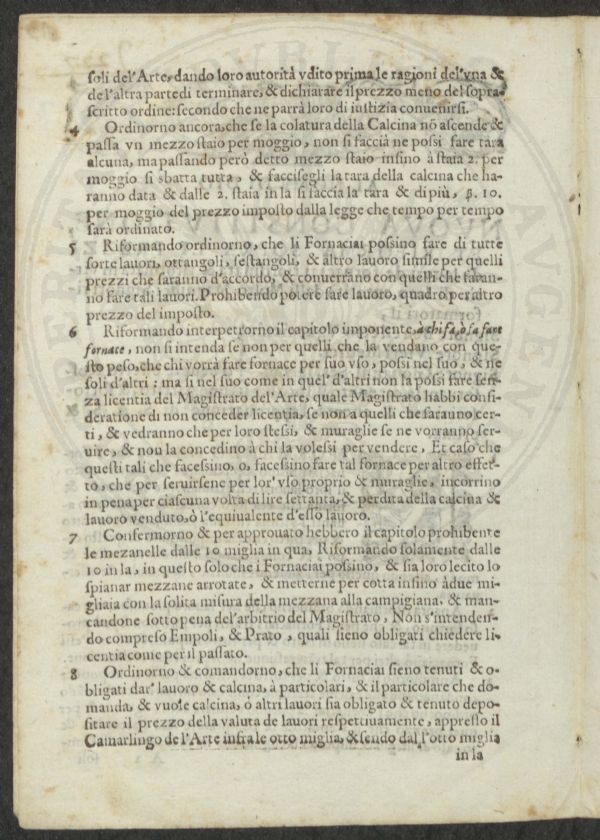 soli del'Arte, dando loro autorità vdito prima le ragioni del'vna &
de l'altra parte di terminare, & dichiarare il prezzo meno del sopra-
scritto ordine: secondo che ne parrà loro di iustizia conuenirsi.
4 Ordinorno ancora, che se la colatura della Calcina nō ascende &
passa vn mezzo staio per moggio, non si faccia ne possi fare tara
alcuna, ma passando però detto mezzo staio insino à staia 2. per
moggio si sbatta tutta, & faccisegli la tara della calcina che ha-
ranno data & dalle 2. staia in la si faccia la tara & di più, β. 10.
per moggio del prezzo imposto dalla legge che tempo per tempo
sarà ordinato.
5 Riformando ordinorno, che li Fornaciai possino fare di tutte
sorte lauori, ottangoli, sestangoli, & altro lauoro simile per quelli
prezzi che saranno d'accordo, & conuerranno con quelli che faran-
no fare tali lauori. Prohibendo potere fare lauoro, quadro per altro
prezzo del imposto.
6 Riformando interpetrorno il capitolo imponente, à chi fa, ò fa fare
fornace, non si intenda se non per quelli che la vendano con que-
sto peso, che chi vorrà fare fornace per suo vso, possi nel suo, & ne
soli d'altri: ma si nel suo come in quel' d'altri non la possi fare sen-
za licentia del Magistrato del'Arte, quale Magistrato habbi consi-
deratione di non conceder licentia, se non a quelli che sarauno cer-
ti, & vedranno che per loro stessi, & muraglie se ne vorranno ser-
uire, & nou la concedino à chi la volessi per vendere, Et caso che
questi tali che facessino, o, facessino fare tal fornace per altro effet-
to, che per seruirsene per lor' vso proprio & muraglie, incorrino
in pena per ciascuna volta di lire settanta, & perdita della calcina &
lauoro venduto, ò l'equiualente d'esso lauoro.
7 Confermorno & per approuato hebbero il capitolo prohibente
le mezanelle dalle 10 miglia in qua, Riformando solamente dalle
10 in la, in questo solo che i Fornaciai possino, & sia loro lecito lo
spianar mezzane arrotate, & metterne per cotta insino à due mi-
gliaia con la solita misura della mezzana alla campigiana, & man-
candone sotto pena del'arbitrio del Magistrato, Non s'intenden-
do compreso Empoli, & Prato, quali sieno obligati chiedere li-
centia come per il passato.
8 Ordinorno & comandorno, che li Fornaciai sieno tenuti & o-
bligati dar' lauoro & calcina, à particolari, & il particolare che do-
manda, & vuole calcina, ò altri lauori sia obligato & tenuto depo-
sitare il prezzo della valuta de lauori respettiuamente, appresso il
Camarlingo de l'Arte infra le otto miglia, & sendo dal l'otto miglia
in la